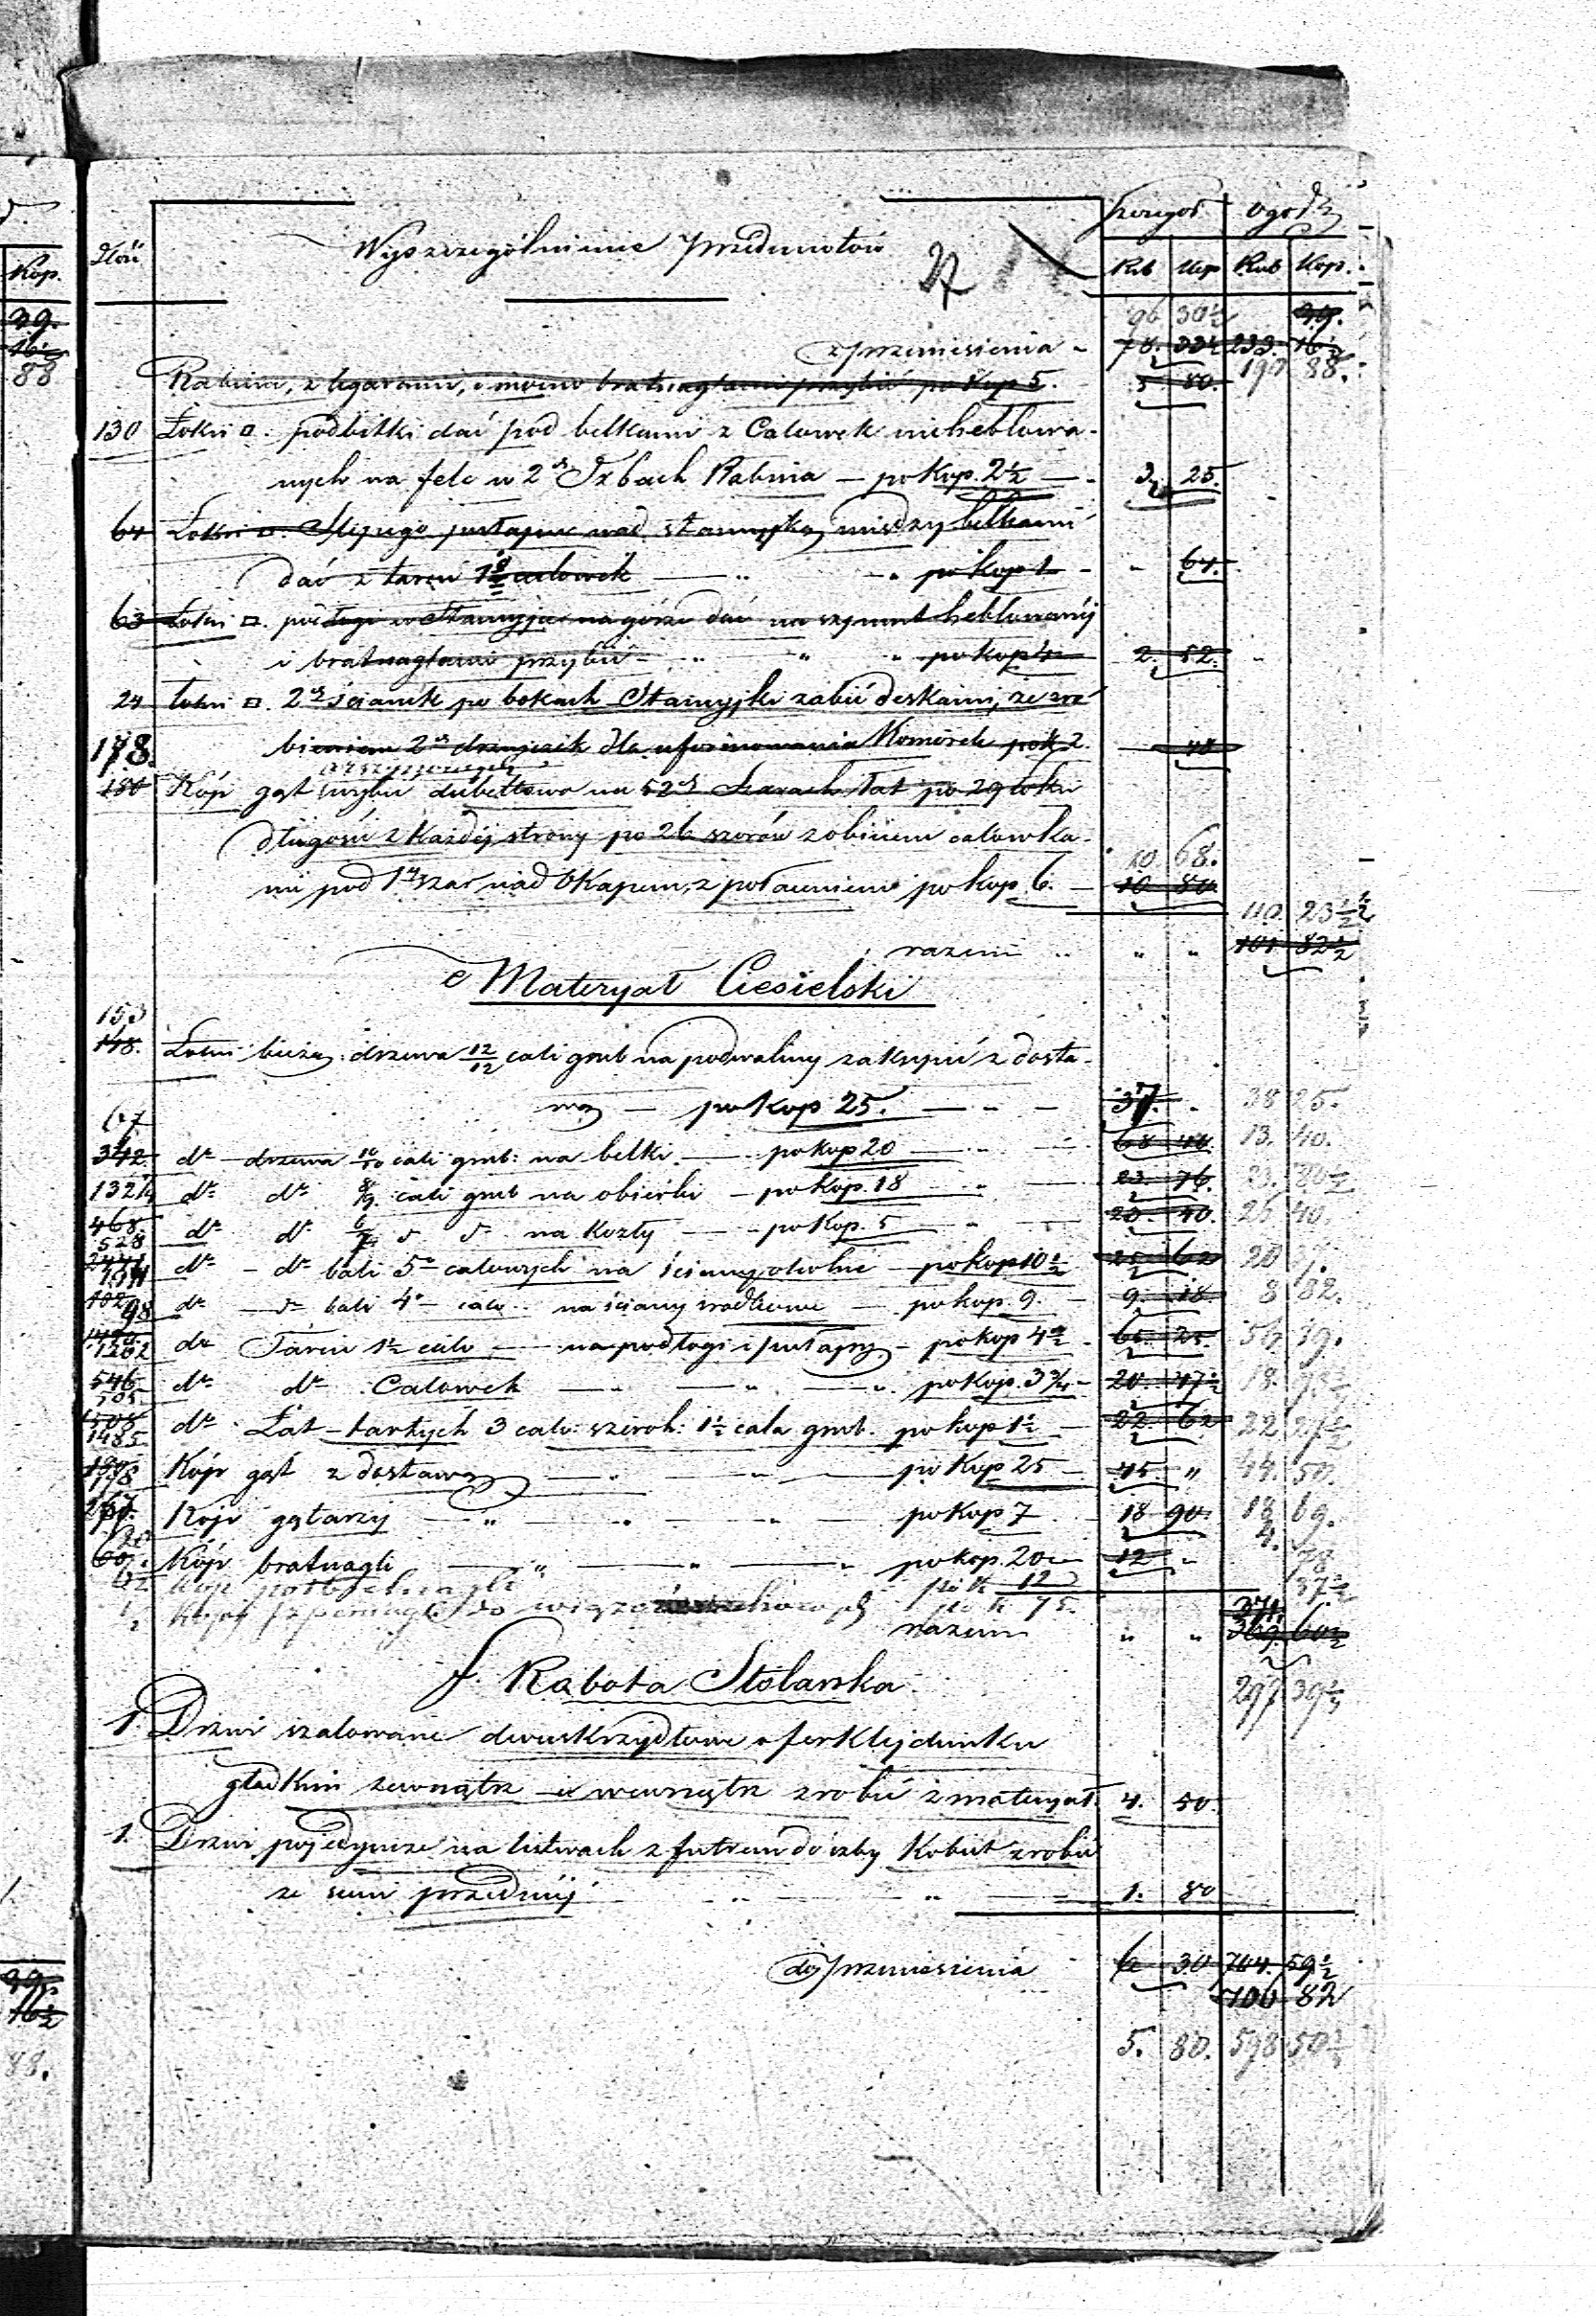 Kop.
39.
16½
88
Ilość
Wyszczególnienie przedmiotów
szczegół
ogół
Rub Kop Rub Kop.
96 30½ 39.
z przeniesienia 78. 33½ 233. 16½
197 88.
z legarami, i bratnaglami przybić po Kop 5. 5 80.
130 Łokci □. podbitki dać pod belkami z Calowek niehеblowa-
nych na felc w 2ch Izbach Rabina — po Kop. 2½ — 3. 25.
64 Łokci □. Ślepego pułapu nad stancyjką między belkami
dać z tarcic 1½ calowek — " — " po kop 1 - " 64.
63 Łokci □. podłogi w Stancyjce na górze dać na szpunt heblowanéj
i bratnaglami przybić — " " " po kop 4 2. 52.
24 Łokci □. 2ch ścianek po bokach Stancyjki zabić deskami, ze zro-
bieniem 2ch drzwiczek dla uformowania Komórek po k 2. — 48
178
180 Kóp gąt przybić dubeltowo na 52ch Szarach łat po 29 łokci
długości z Każdéj strony po 26 szarów z obiciem calowka-
mi pod 1szy szar nad Okapem, z połaceniem po kop. 6. 10. 80
10. 68.
110. 23½
razem .. " " 101 82½
e Materyał Ciesielski
153
148. Łokci bieżą: drzewa 12/12 cali grub na podwaliny zakupić z dosta-
wą — po kop 25. — " — 37. " 38 25.
67
342. do drzewa 10/10 cali grub: na belki — po kop 20 — 68 40 13. 40.
132 do do 8/9 cali grub na obierki — po Kop. 18 — 23. 76. 23.
468.
528 do do 6/7 na kozły — po Kop. 5 — 23. 40. 26 40.
do — do bali 5o calowych na ściany około — po kop 10½ 25 62 20
102
98 do — do bali 4o calo .. na ściany środkowe — po kop. 9. - 9. 18. 8 82.
1262 do Tarcic 1½ calo — na podłogi i pułapy — po kop 4½ - 65. 25 56 39.
546
505. do do Calowek — " — " — " po kop. 3¾ - 20. 47½ 18.
1508
1485 do Łat tartych 3 calo: szerok: 1½ cala grub. po kop 1½ — 22. 62 22 27½
180
178 Kóp gąt z dostawą — " — " — po Kop 25 — 45 " 44. 50.
267. Kóp gątarzy — " — " — " — po Kop 7 - 18 90. 18 69.
60. Kóp bratnagli — " — " — " po kop. 20 — 12 " 4.
62 Kóp półbratnagli po k 12
½ Kopy po k 75.
razem " " 369. 60½
371.
297 39½
f. Robota Stolarska
1. Drzwi szalowane dwuskrzydłowe o ferklejdunku
gładkim zewnątrz i wewnątrz zrobić z materyał. 4. 50.
1. Drzwi pojedyncze na listwach z futrem do izby Kobiet zrobić
ze sieni przedniéj — " — " — 1. 80
do przeniesienia 6 30 704. 59½
706 82
5. 80. 598 50½
39.
16½
88.